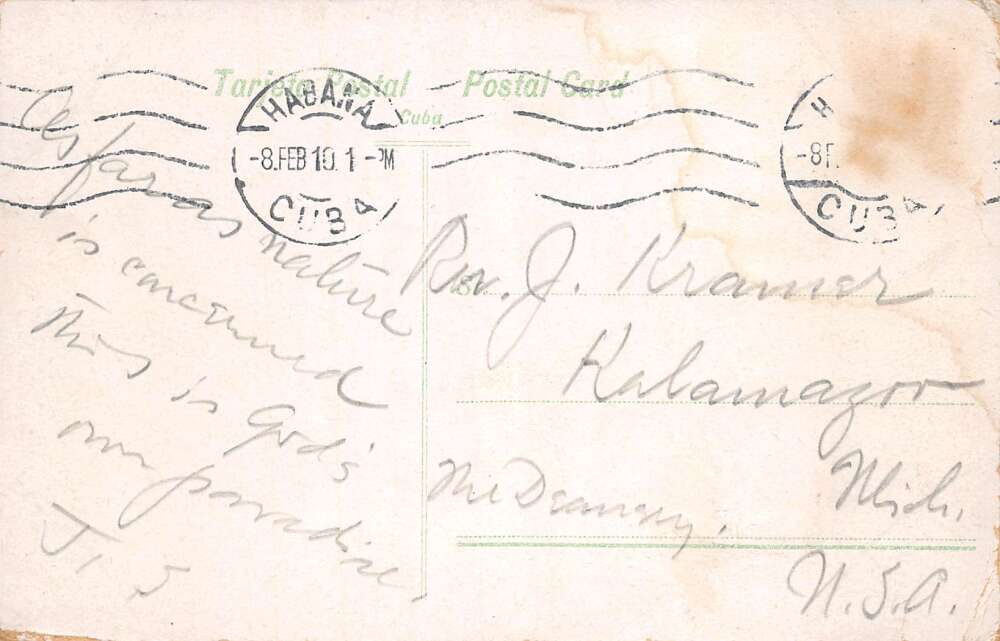 Tarjeta Postal Postal Card
Cuba
HABANA
-8.FEB 10. 1 -PM
CUBA
H
-8F
CUBA
As far as nature
is concerned
this is God's
own paradise
Rev. J. Kramer
Kalamazoo
The Deanery, Mich.
U.S.A.